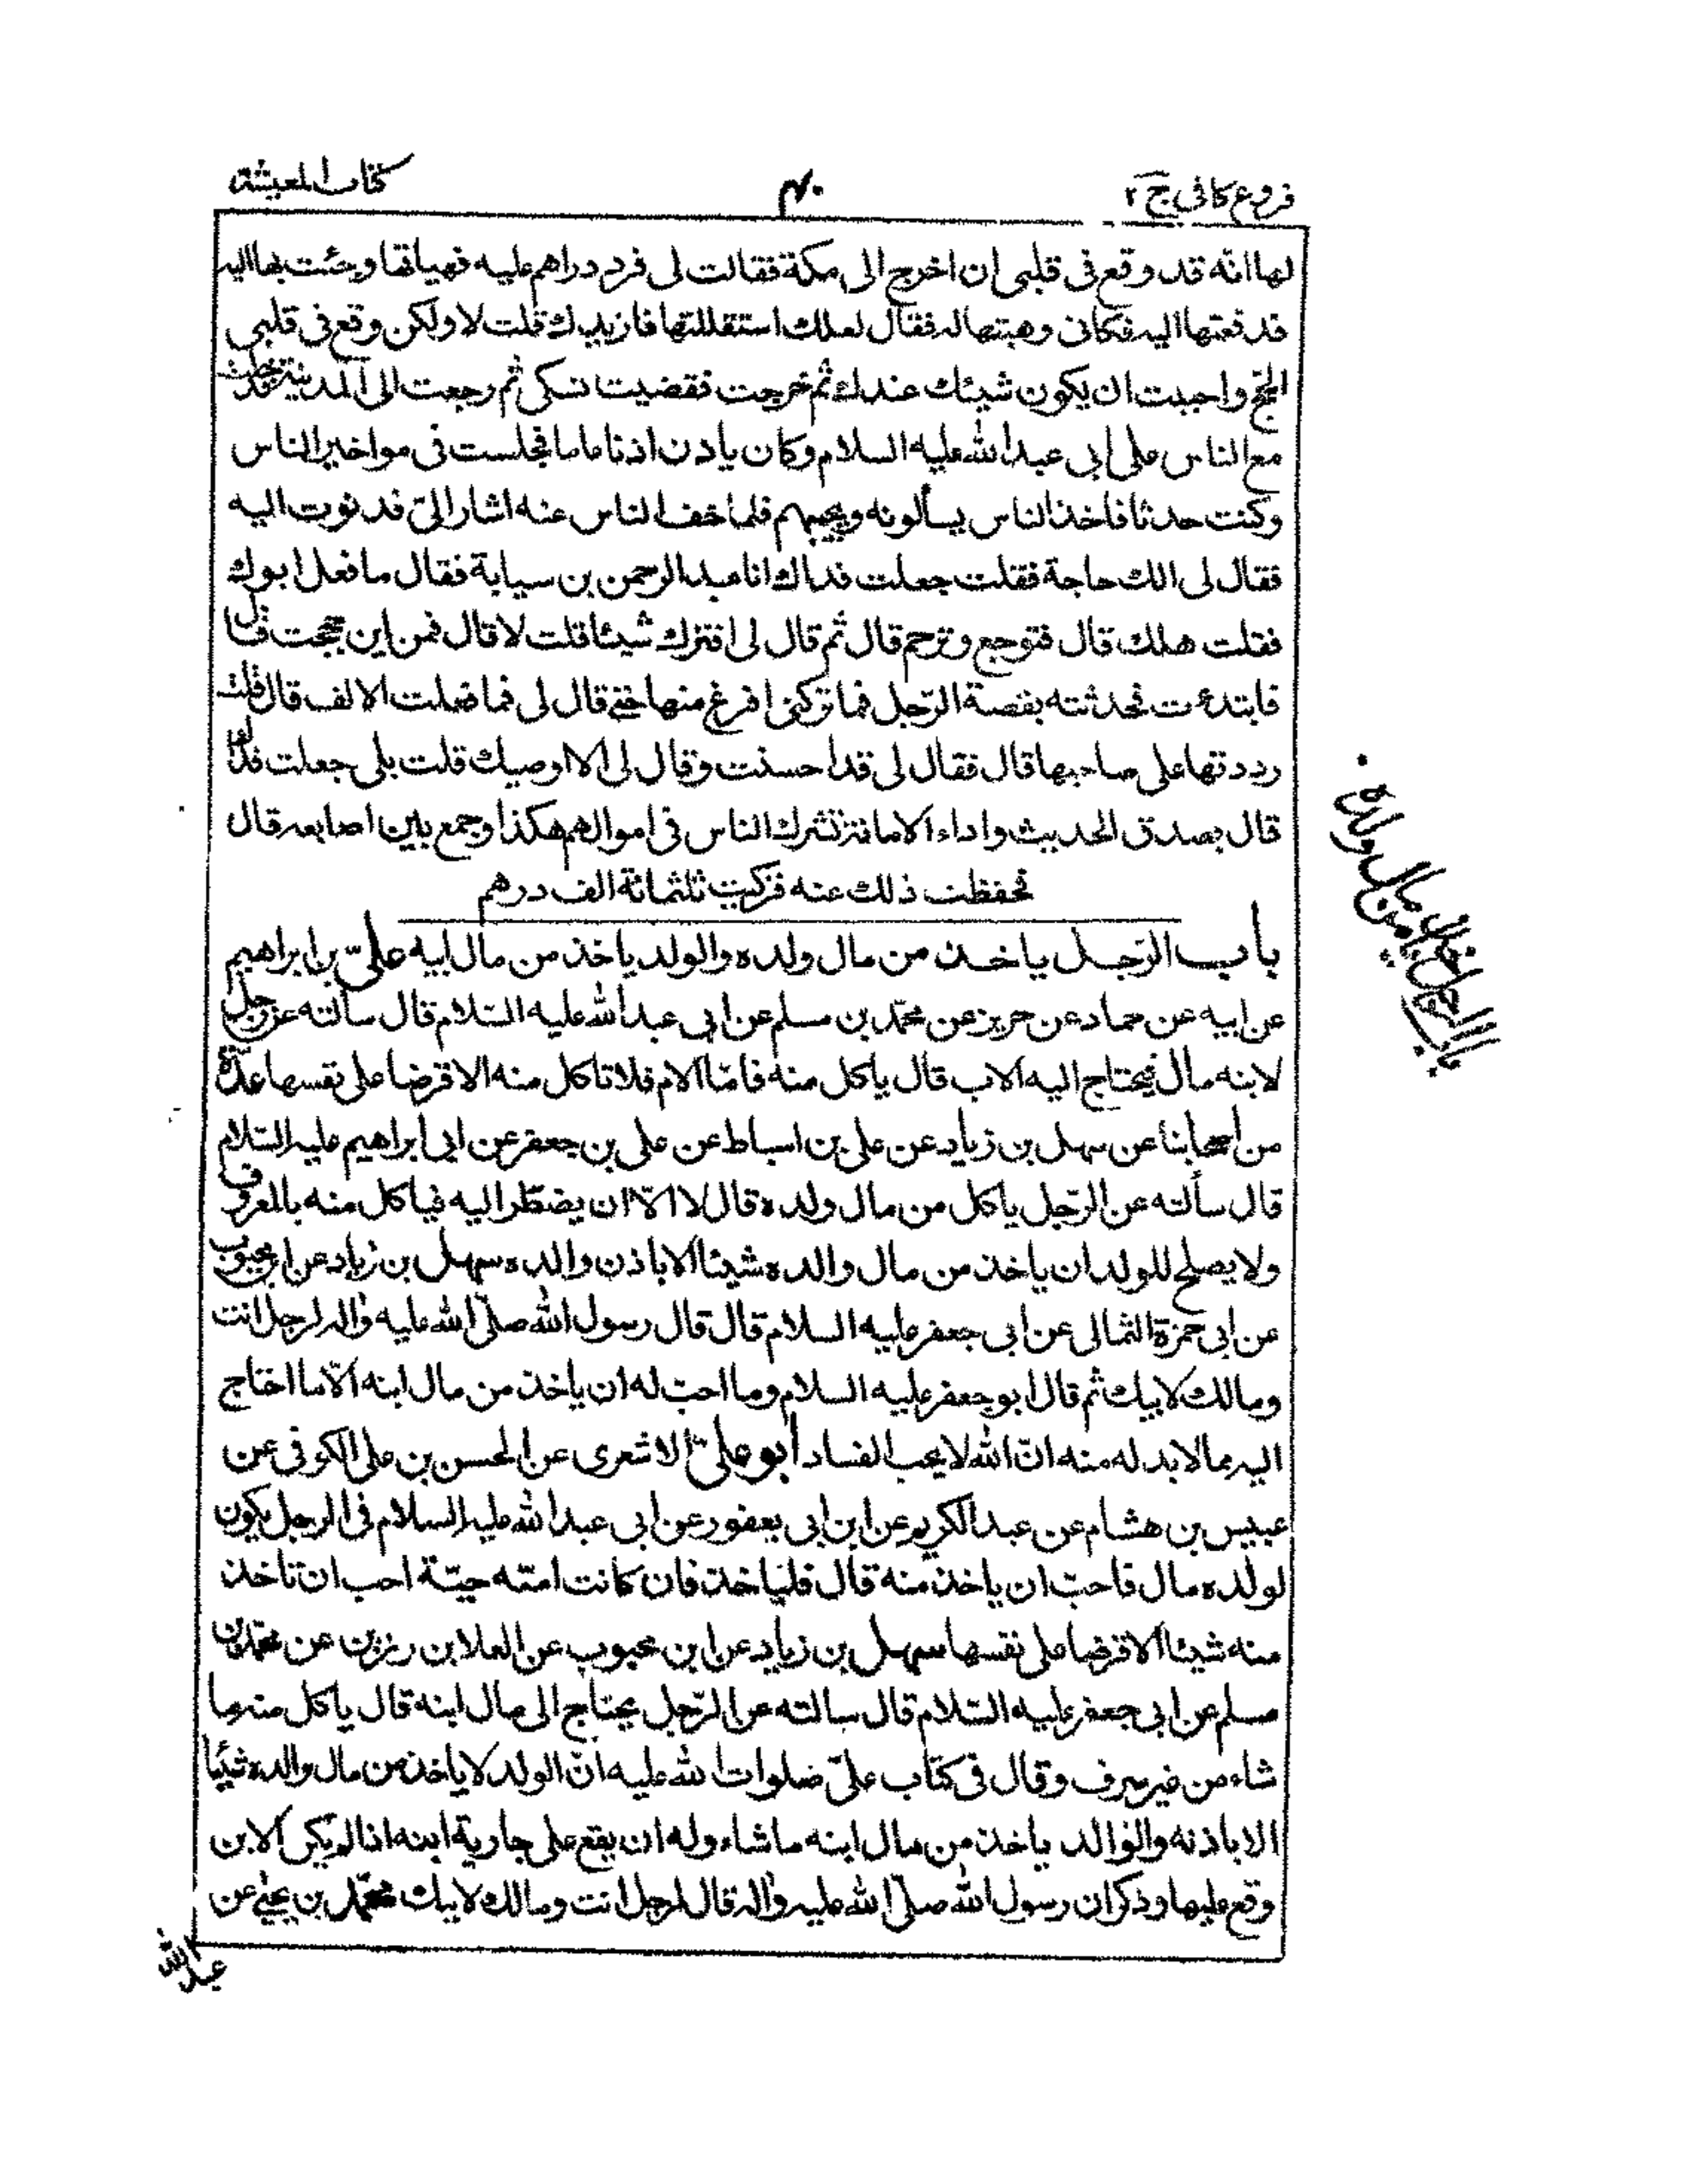 فروع كافى ج ٢
كتاب المعيشة
لها انّه قد وقع فى قلبى ان اخرج الى مكة فقالت لى فرد دراهم عليه فهياتها وجئت بها اليه
فدفعتها اليه فكانى وهبتها له فقال لعلك استقللتها فازيدك قلت لا ولكن وقع فى قلبى
الحج واحببت ان يكون شيئك عندك ثم خرجت فقضيت نسكى ثم رجعت الى المدينة فدخلت
مع الناس على ابى عبد الله عليه السلام وكان ياذن اذنا عاما فجلست فى مواخير الناس
وكنت حدثا فاخذ الناس يسألونه ويجيبهم فلما خف الناس عنه اشار الىّ فدنوت اليه
فقال لى الك حاجة فقلت جعلت فداك انا عبد الرحمن بن سيابة فقال ما فعل ابوك
فقلت هلك قال فتوجع وترحم قال ثم قال لى افترك شيئا قلت لا قال فمن اين حججت قال
فابتدءت فحدثته بقصة الرّجل فما تركنى افرغ منها حتى قال لى فما فعلت الالف قال قلت
رددتها على صاحبها قال فقال لى قد احسنت وقال لى الا اوصيك قلت بلى جعلت فداك
قال بصدق الحديث واداء الامانة تشرك الناس فى اموالهم هكذا وجمع بين اصابعه قال
فحفظت ذلك عنه فزكيت ثلثمائة الف درهم
باب الرّجل ياخذ من مال ولده والولد ياخذ من مال ابيه علىّ بن ابراهيم
عن ابيه عن حماد عن حريز عن محمّد بن مسلم عن ابى عبد الله عليه السّلام قال سألته عن رجل
لابنه مال فيحتاج اليه الاب قال ياكل منه فامّا الام فلا تاكل منه الا قرضا على نفسها عدّة
من اصحابنا عن سهل بن زياد عن على بن اسباط عن على بن جعفر عن ابى ابراهيم عليه السّلام
قال سألته عن الرّجل ياكل من مال ولده قال لا الّا ان يضطّر اليه فياكل منه بالمعروف
ولا يصلح للولد ان ياخذ من مال والده شيئا الا باذن والده سهل بن زياد عن ابن محبوب
عن ابى حمزة الثمالى عن ابى جعفر عليه السلام قال قال رسول الله صلّى الله عليه واله لرجل انت
ومالك لابيك ثم قال ابو جعفر عليه السلام وما احبّ له ان ياخذ من مال ابنه الّا ما احتاج
اليه مما لابد له منه انّ الله لا يحب الفساد أبو علىّ الاشعرى عن الحسن بن على الكوفى عن
عبيس بن هشام عن عبد الكريم عن ابن ابى يعفور عن ابى عبد الله عليه السلام فى الرجل يكون
لولده مال فاحبّ ان ياخذ منه قال فلياخذ فان كانت امّه حيّة احب ان تاخذ
منه شيئا الا قرضا على نفسها سهل بن زياد عن ابن محبوب عن العلا بن رزين عن محمّد بن
مسلم عن ابى جعفر عليه السّلام قال سالته عن الرّجل يحتاج الى مال ابنه قال ياكل منه ما
شاء من غير سرف وقال فى كتاب علىّ صلوات الله عليه انّ الولد لا ياخذ من مال والده شيئا
الا باذنه والوالد ياخذ من مال ابنه ما شاء وله ان يقع على جارية ابنه اذا لم يكن الابن
وقع عليها وذكر ان رسول الله صلّى الله عليه واله قال لرجل انت ومالك لابيك محمّد بن يحيى عن
عبد الله